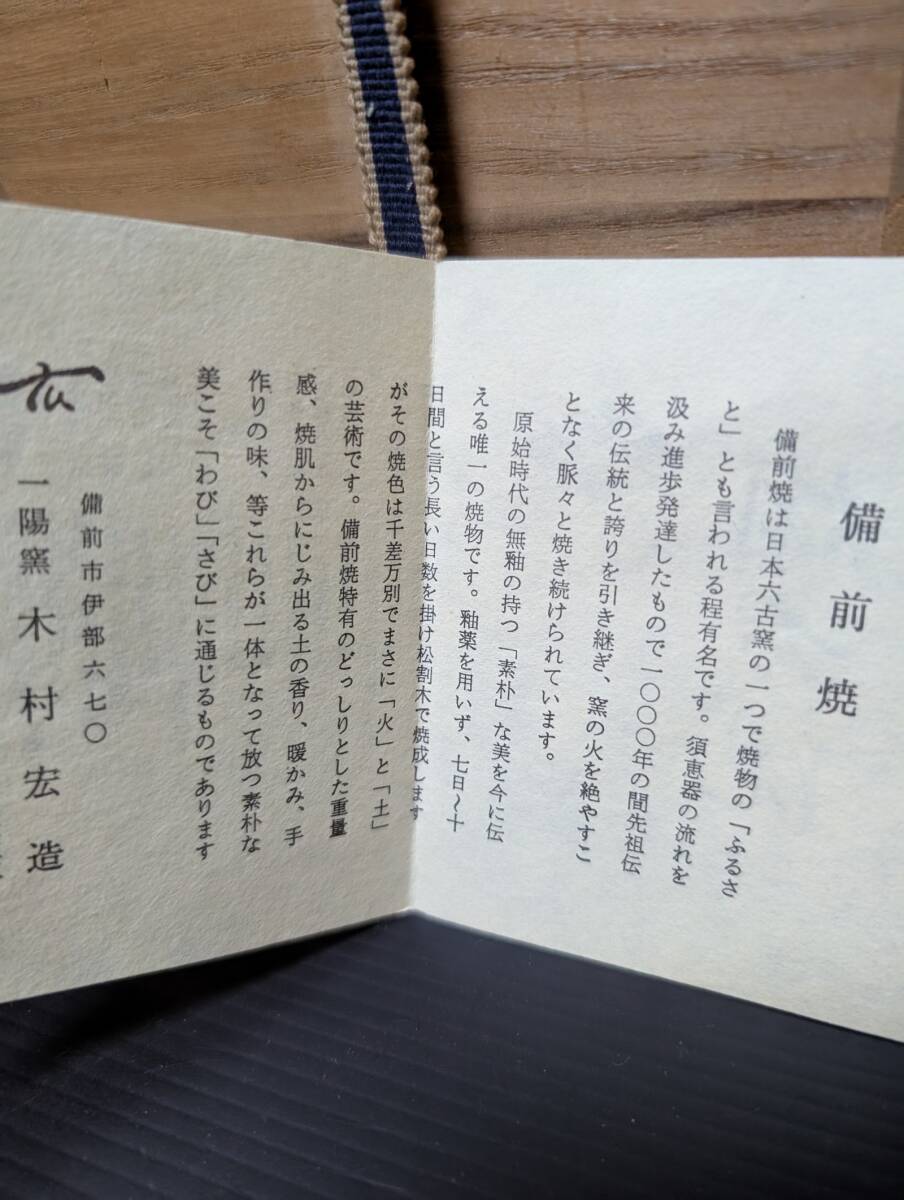 備前焼
備前焼は日本六古窯の一つで焼物の「ふるさ
と」とも言われる程有名です。須恵器の流れを
汲み進歩発達したもので一〇〇〇年の間先祖伝
来の伝統と誇りを引き継ぎ、窯の火を絶やすこ
となく脈々と焼き続けられています。
原始時代の無釉の持つ「素朴」な美を今に伝
える唯一の焼物です。釉薬を用いず、七日〜十
日間と言う長い日数を掛け松割木で焼成します
がその焼色は千差万別でまさに「火」と「土」
の芸術です。備前焼特有のどっしりとした重量
感、焼肌からにじみ出る土の香り、暖かみ、手
作りの味、等これらが一体となって放つ素朴な
美こそ「わび」「さび」に通じるものであります
備前市伊部六七〇
一陽窯 木村宏造